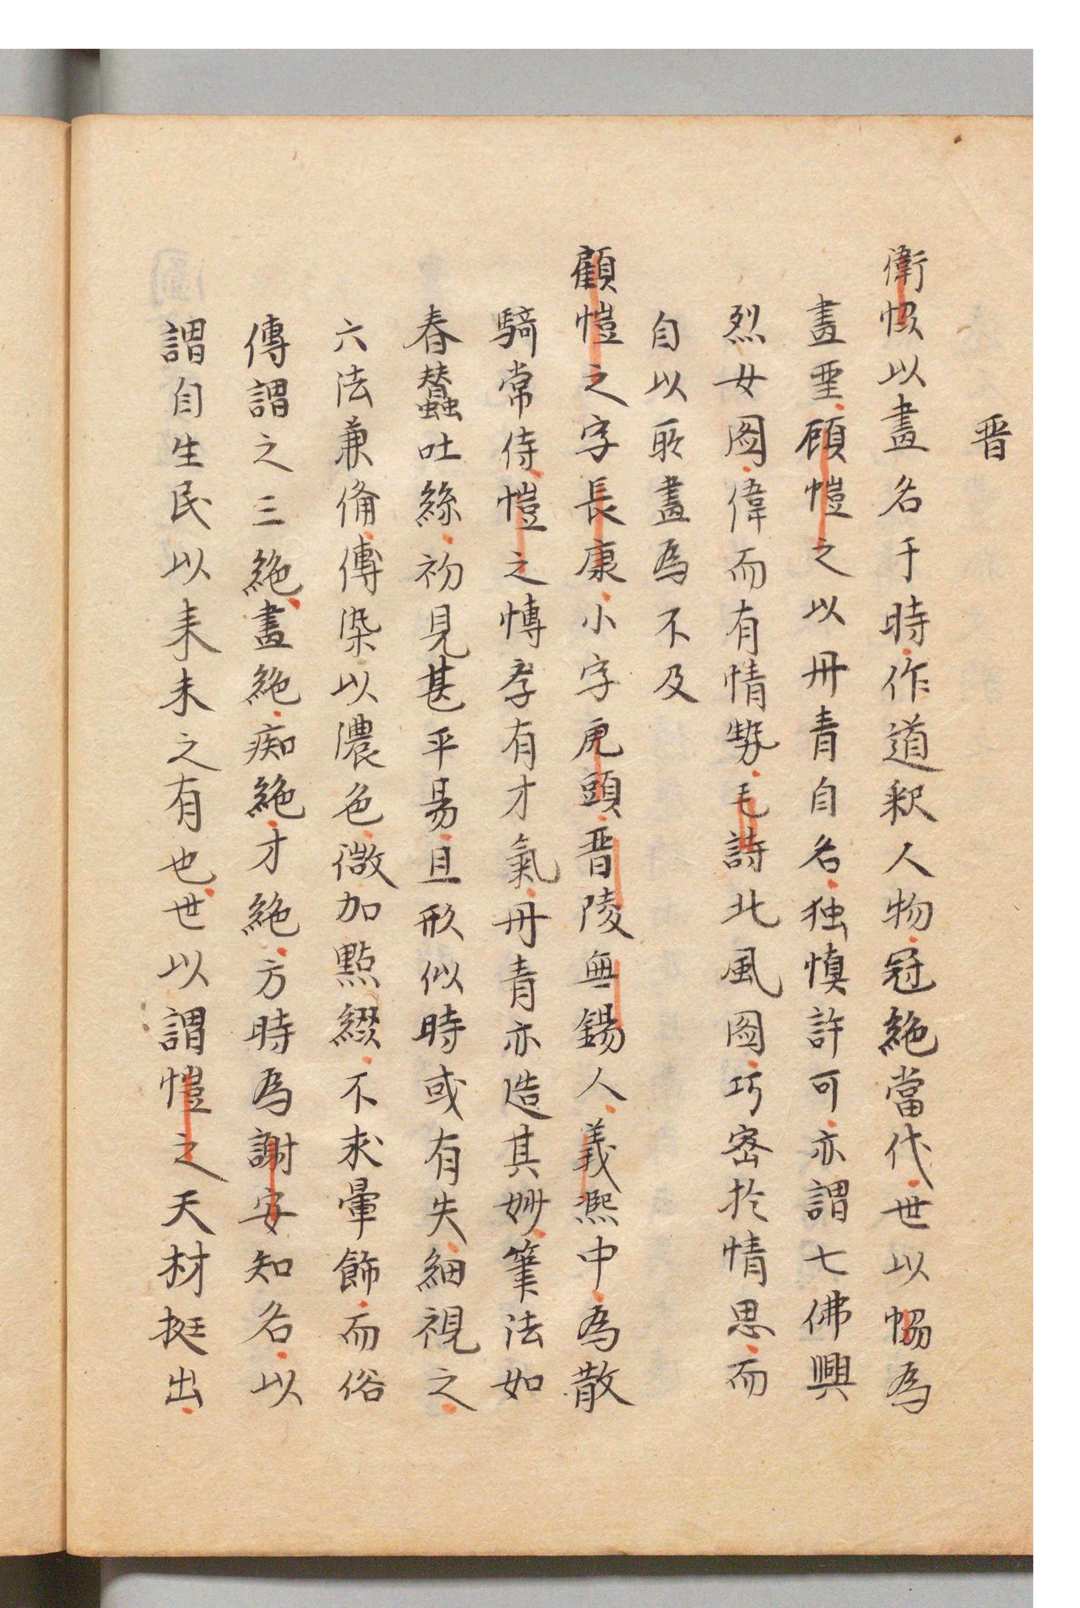 晋
衛恊以畫名于時作道釈人物冠絶當代世以恊為
畫聖顧愷之以丹青自名独慎許可亦謂七佛與
烈女図偉而有情勢毛詩北風図巧密於情思而
自以所畫為不及
顧愷之字長康小字虎頭晋陵無錫人義熙中為散
騎常侍愷之博學有才氣丹青亦造其妙筆法如
春蠶吐絲初見甚平易且形似時或有失細視之
六法兼備傅染以濃色微加點綴不求暈飾而俗
傳謂之三絶畫絶痴絶才絶方時為謝安知名以
謂自生民以来未之有也世以謂愷之天材挺出